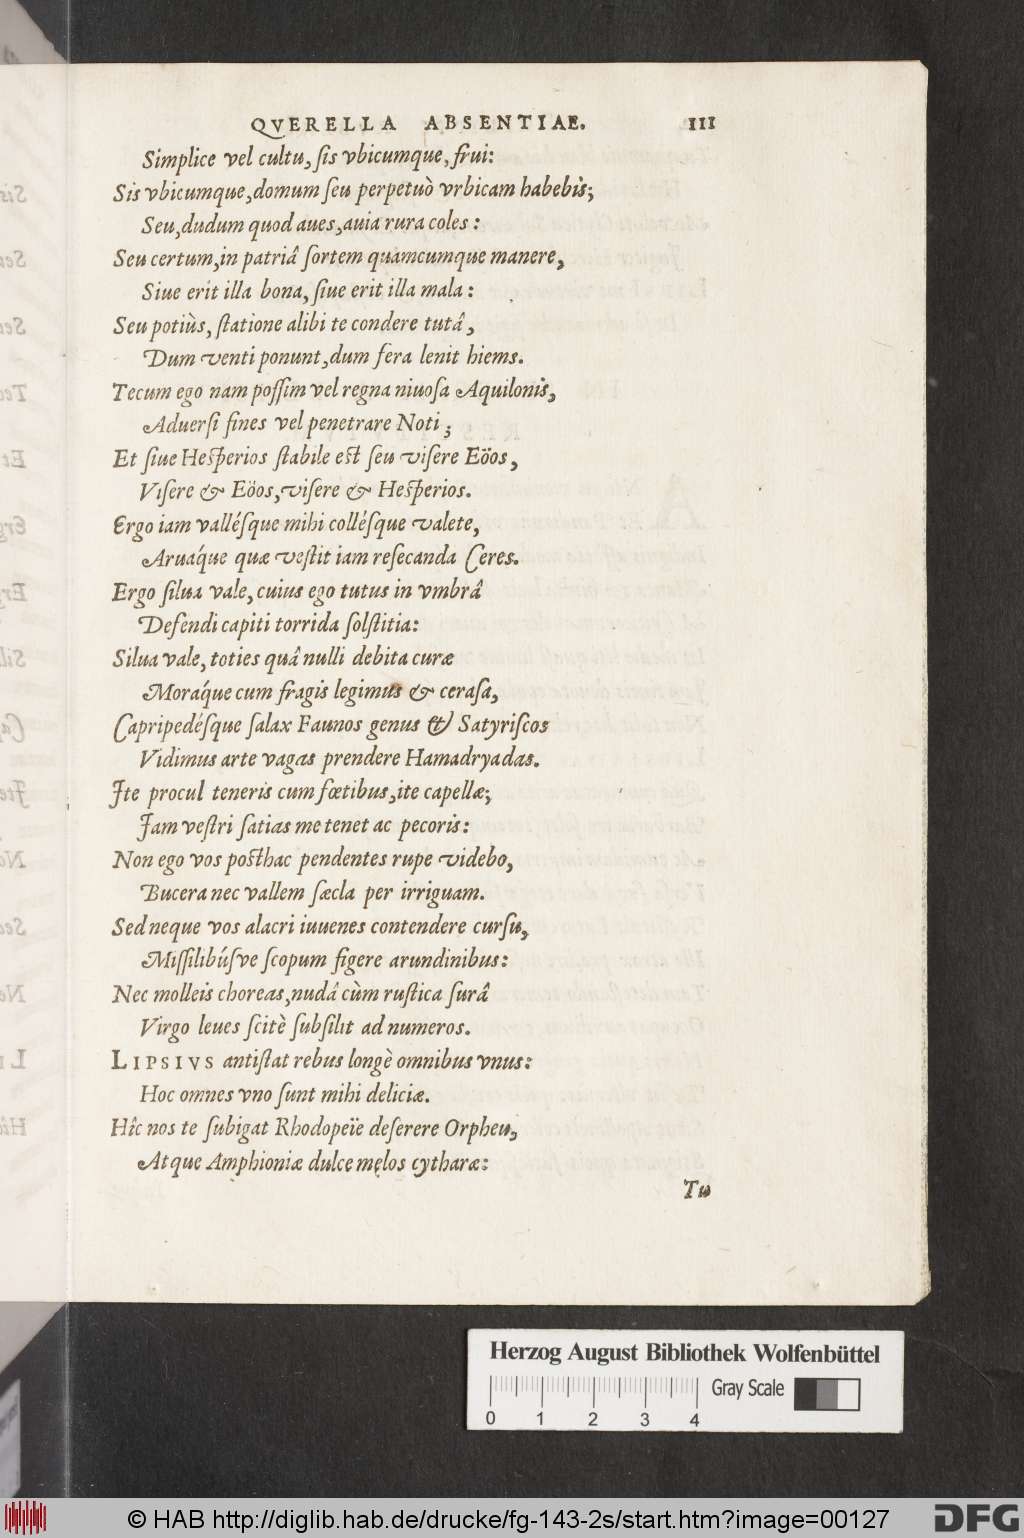 QVERELLA ABSENTIAE. III
Simplice vel cultu, ſis vbicumque, frui:
Sis vbicumque, domum ſeu perpetuò vrbicam habebis;
Seu, dudum quod aues, auia rura coles:
Seu certum, in patriâ ſortem quamcumque manere,
Siue erit illa bona, ſiue erit illa mala:
Seu potiùs, ſtatione alibi te condere tutâ,
Dum venti ponunt, dum fera lenit hiems.
Tecum ego nam poſſim vel regna niuoſa Aquilonis,
Aduerſi fines vel penetrare Noti;
Et ſiue Heſperios ſtabile eſt ſeu viſere Eöos,
Viſere & Eöos, viſere & Heſperios.
Ergo iam valléſque mihi colléſque valete,
Aruáque quæ veſtit iam reſecanda Ceres.
Ergo ſilua vale, cuius ego tutus in vmbrâ
Defendi capiti torrida ſolſtitia:
Silua vale, toties quâ nulli debita curæ
Moráque cum fragis legimus & ceraſa,
Capripedéſque ſalax Faunos genus & Satyriſcos
Vidimus arte vagas prendere Hamadryadas.
Ite procul teneris cum fœtibus, ite capellæ;
Iam veſtri ſatias me tenet ac pecoris:
Non ego vos poſthac pendentes rupe videbo,
Bucera nec vallem ſæcla per irriguam.
Sed neque vos alacri iuuenes contendere curſu,
Miſſilibúſve ſcopum figere arundinibus:
Nec molleis choreas, nudâ cùm ruſtica ſurâ
Virgo leues ſcitè ſubſilit ad numeros.
LIPSIVS antiſtat rebus longè omnibus vnus:
Hoc omnes vno ſunt mihi deliciæ.
Hîc nos te ſubigat Rhodopeïe deſerere Orpheu,
Atque Amphioniæ dulce melos cytharæ:
Tu
Herzog August Bibliothek Wolfenbüttel
Gray Scale
0 1 2 3 4
© HAB http://diglib.hab.de/drucke/fg-143-2s/start.htm?image=00127
DFG